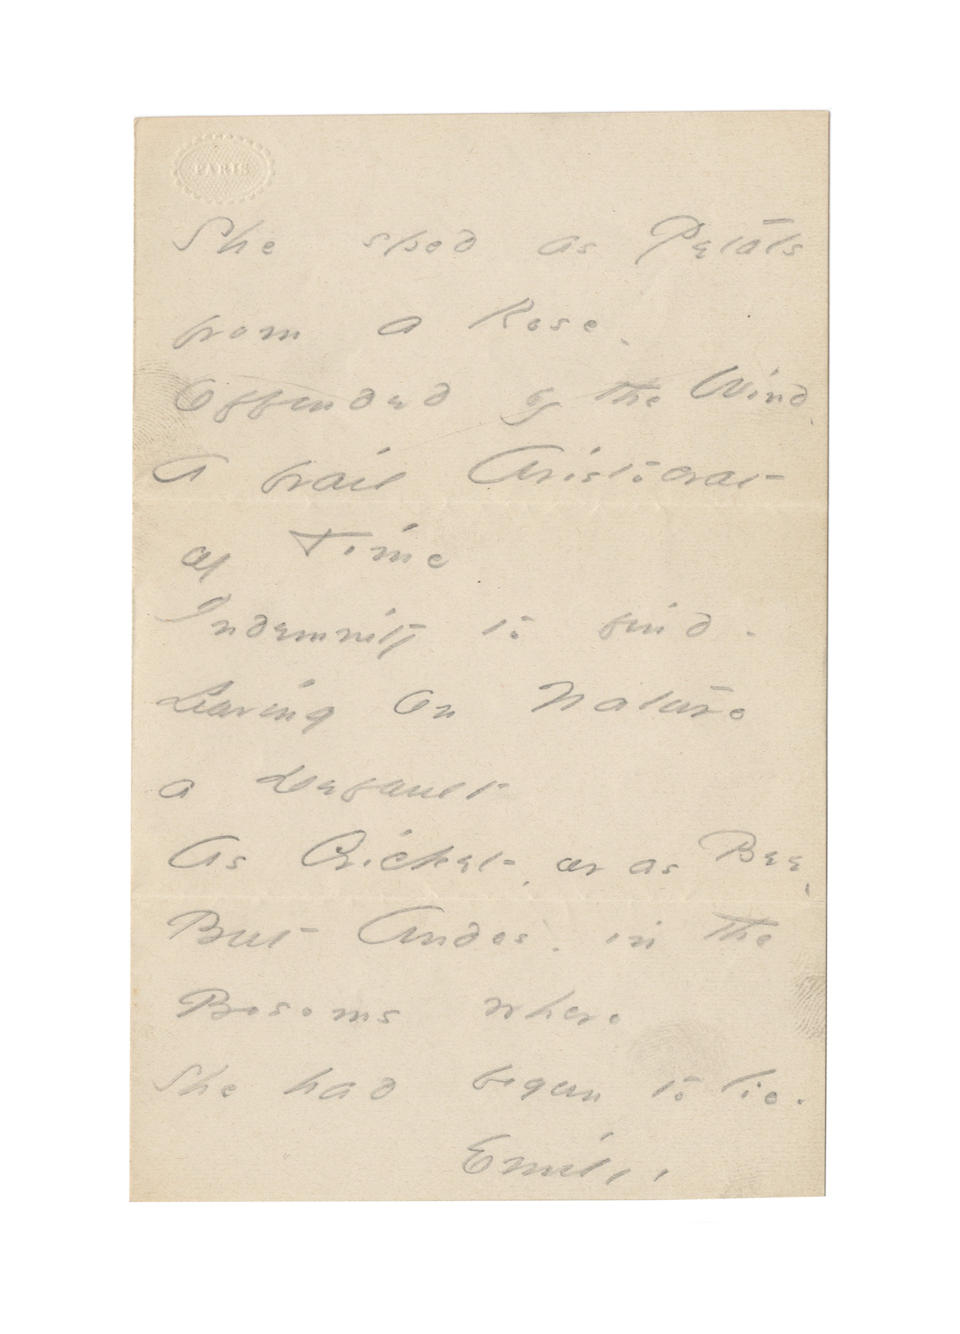 PARIS
She shed as Petals
from a Rose.
Offended by the Wind,
A frail Aristocrat
of Time
Indemnity to find -
Leaving on Nature
a Default
As Cricket, or as Bee,
But Andes. in the
Bosoms where
She had begun to lie.
Emily.